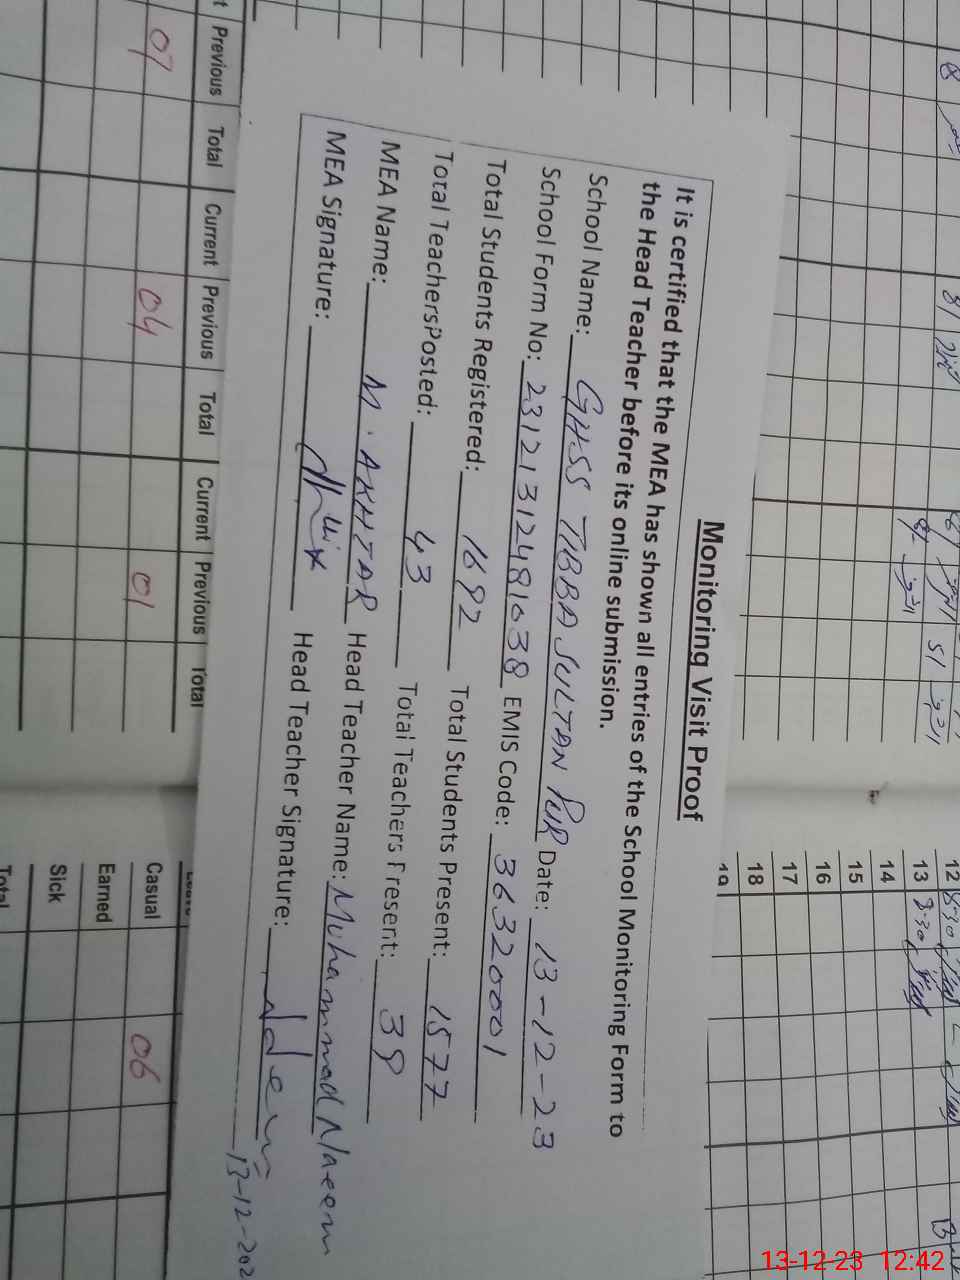 Monitoring Visit Proof
It is certified that the MEA has shown all entries of the School Monitoring Form to
the Head Teacher before its online submission.
School Name: GHSS TIBBA SULTAN PUR Date: 13-12-23
School Form No: 23121312481038 EMIS Code: 36320001
Total Students Registered: 1692 Total Students Present: 1577
Total TeachersPosted: 43 Total Teachers Present: 39
MEA Name: M. AKHTAR Head Teacher Name: Muhammad Naeem
MEA Signature: Head Teacher Signature:
13-12-202
Previous Total Current Previous Total Current Previous Total
07 04 01
12 8-30
13 8-30
14
15
16
17
18
19
Casual 06
Earned
Sick
Total
13-12-23 12:42